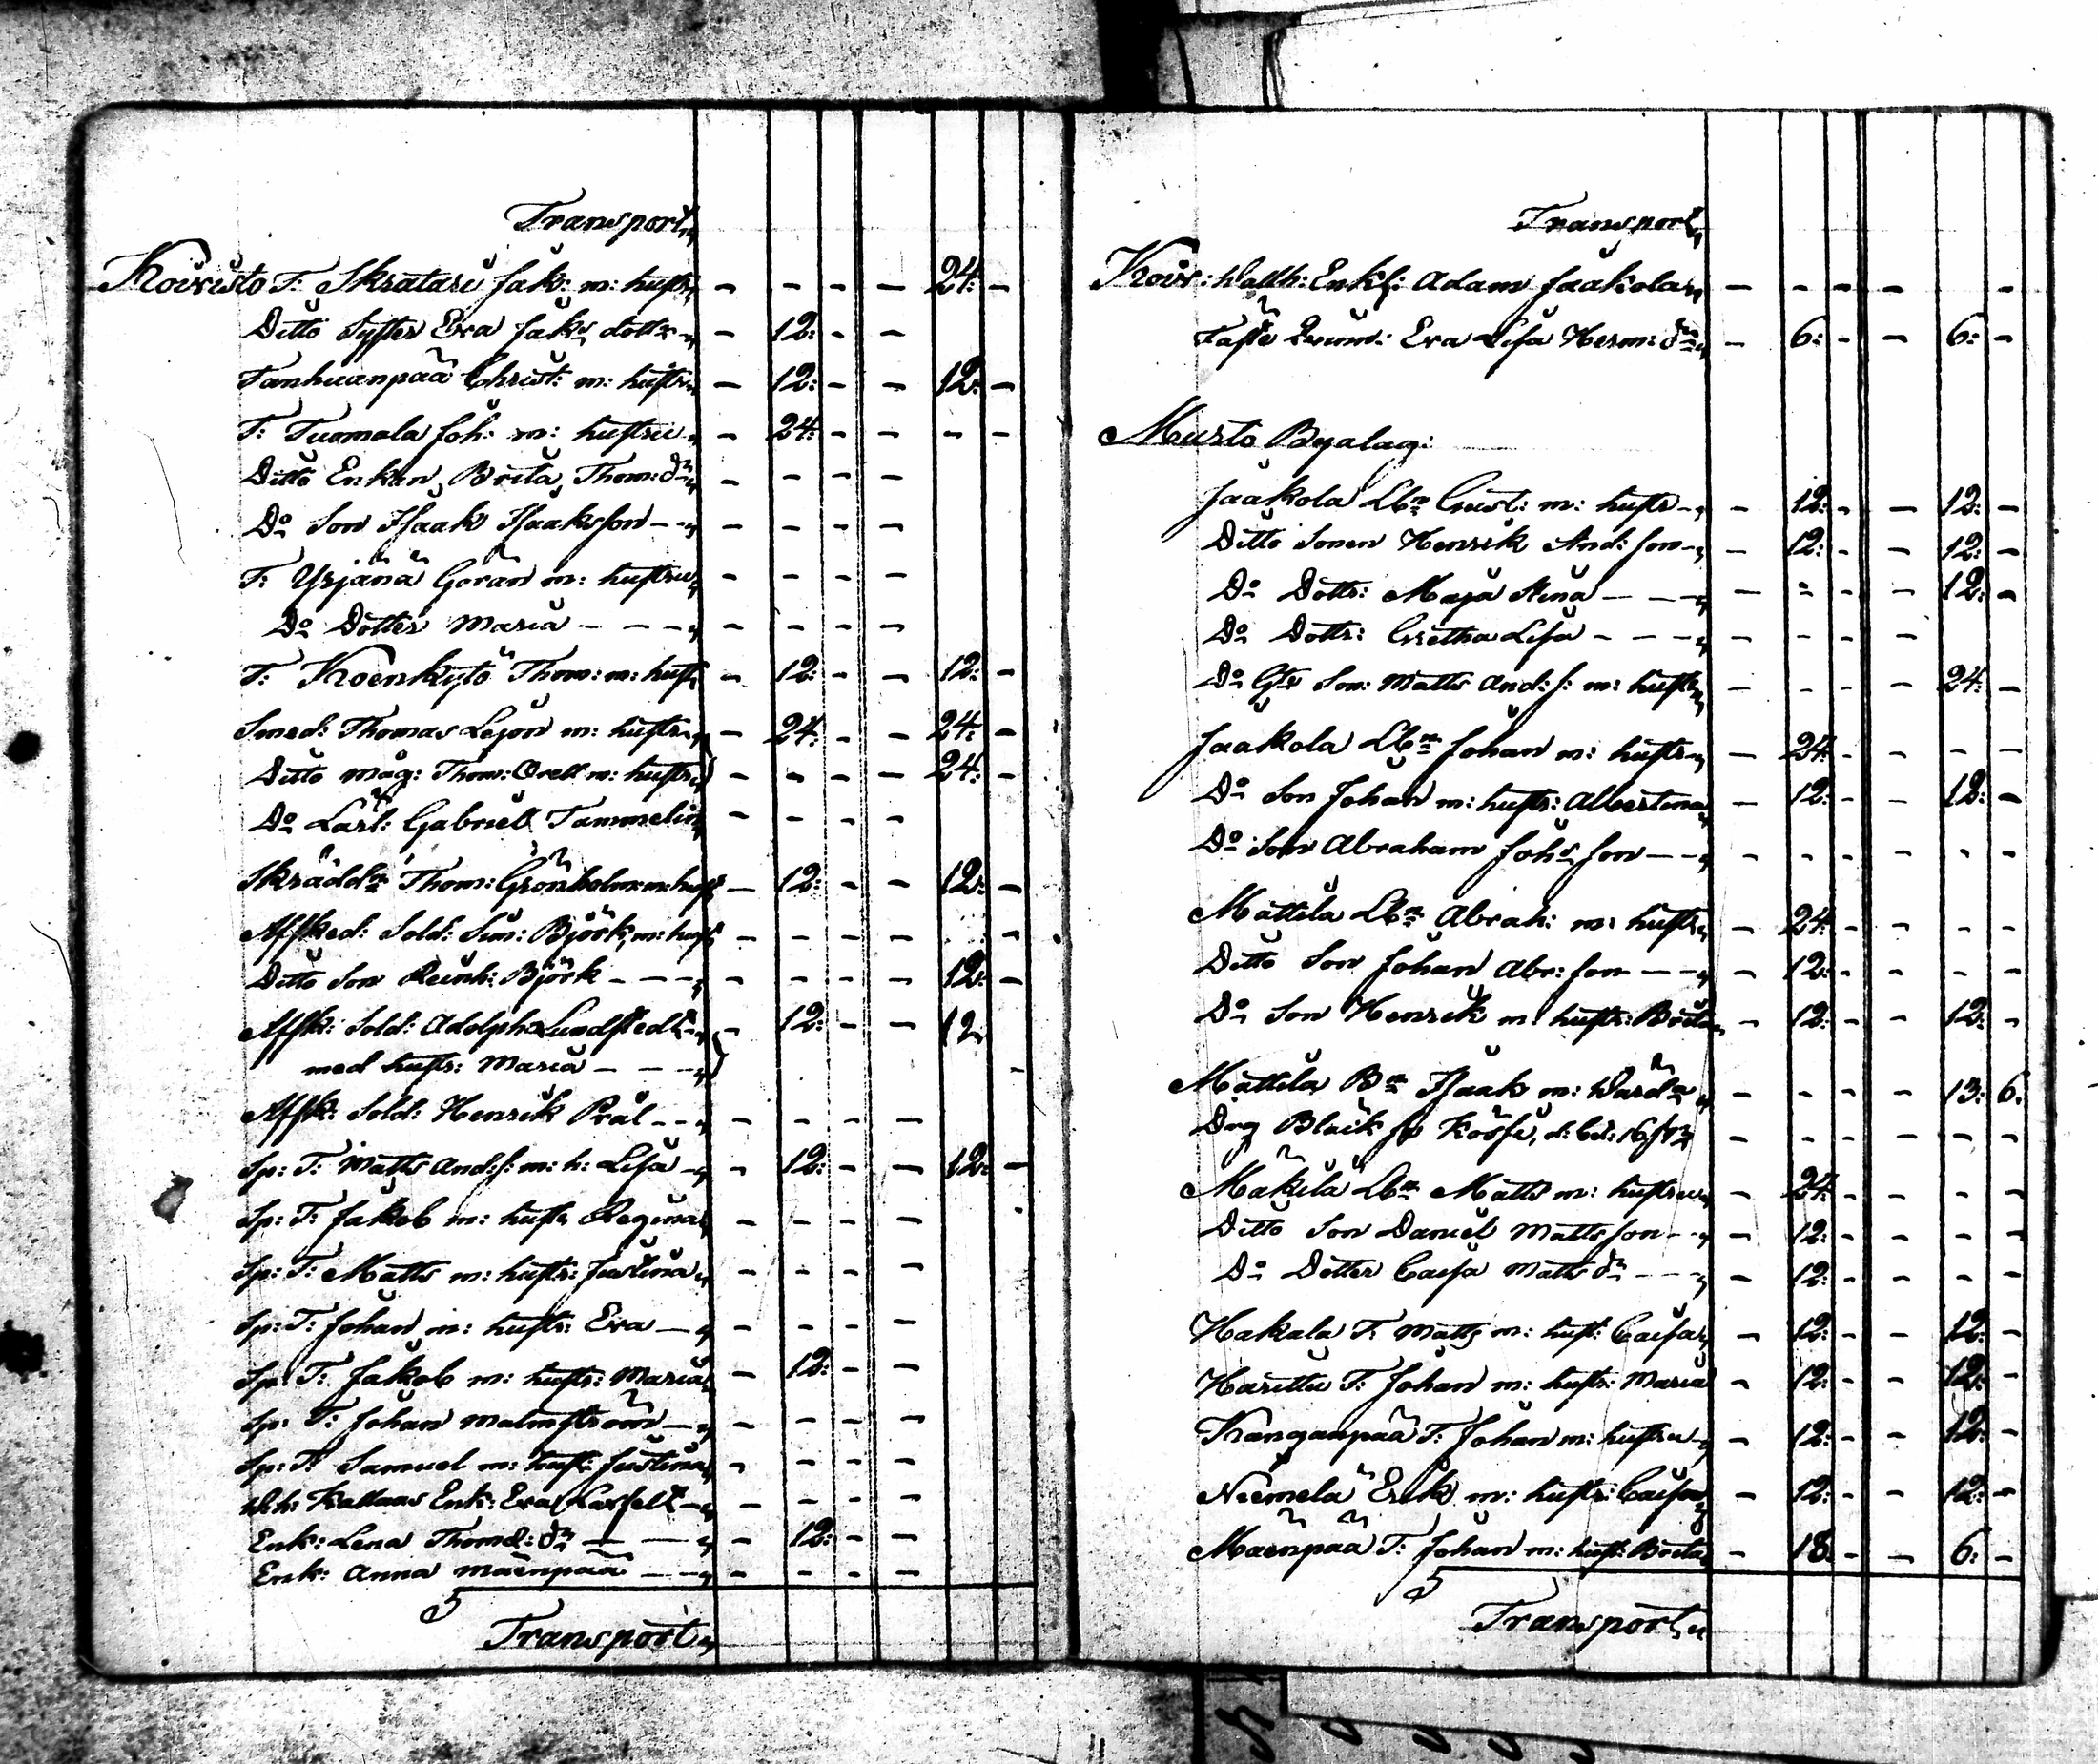 Transport,,
Koivisto T: Skratari Jak: m: hustr - - - - 24: -
Ditto Syster Eva Jaks dottr - 12: - -
Tanhuanpää Christ: m: hustr - 12: - - 12: -
T: Tuomala Joh: m: hustru - 24: - - - -
Ditto Enkan Brita Thom: dr - - - -
Do Son Isaak Isaksson - - - - - -
T: Yrjänä Göran m: hustru - - - -
Do Dotter Maria - - - - - - - -
T: Koenkytö Thom: m: hustr - 12: - - 12: -
Smed: Thomas Lejon m: hustr - 24: - - 24: -
Ditto Måg: Thom: Orell m: hustr - - - - 24: -
Do Lärl: Gabriel Tammelin - - - -
Skräddr Thom: Grönholm m: hust - 12: - - 12: -
Affsked: Sold: Sim: Björk, m: hust - - - - -
Ditto Son Reinh: Björk - - - - - - - 12: -
Affsk: Sold: Adolph Lundstedt - 12: - - 12
med hustr: Maria - - - -
Affsk: Sold: Henrik Prål - - - - - -
Sp: T: Matts And: s: m: h: Lisa - - 12: - - 12: -
Sp: T: Jakob m: hustr Regina - - - -
Sp: T: Matts m: hustr: Justina - - - -
Sp: T: Johan m: hustr: Eva - - - - -
Sp: T: Jakob m: hustr: Maria - 12: - -
Sp: T: Johan Malmström - - - - -
Sp: T: Samuel m: hust: Justina - - - -
Enk: Eva - - - - -
Enk: Lena Thomæ: dr - - - 12: - -
Enk: Anna Mäenpää - - - - - -
Transport,,
Transport,,
Koiv: Enk: Adam Jaakola - - - - -
Eva Lisa Herm: dr - 6: - - 6: -
Murto Byalag:
Jaakola Lbr Gust: m: hustr - - 12: - - 12: -
Ditto Sonen Henrik And: son - - 12: - - 12: -
Do Dottr: Maja Stina - - - - - - - 12: -
Do Dottr: Gretha Lisa - - - - - - -
Do Son: Matts And: s: m: hustr - - - - 24: -
Jaakola Lbr Johan m: hustr - 24: - - - -
Do Son Johan m: hustr: Albertina - 12: - - 12: -
Do Son Abraham Johs son - - - - - - - -
Mattila Lbr Abrah: m: hustr - 24: - - - -
Ditto Son Johan Abr: son - - - 12: - - - -
Do Son Henrik m: hustr: Brita - 12: - - 12: -
Mattila Br Isaak m: - - - - 13: 6.
- - - - - -
Mäkilä Lbr Matts m: hustru - 24: - - - -
Ditto Son Daniel Matts son - - 12: - - - -
Do Dotter Caisa Matts dr - - - 12: - - - -
Hakala T: Matts m: hust: Caisa - 12: - - 12: -
Harittu T: Johan m: hustr: Maria - 12: - - 12: -
Kanganpää T: Johan m: hustru - 12: - - 12: -
Niemelä Erik m: hustr: Caisa - 12: - - 12: -
Mäenpää T: Johan m: hust: Brita - 18. - - 6: -
Transport,,